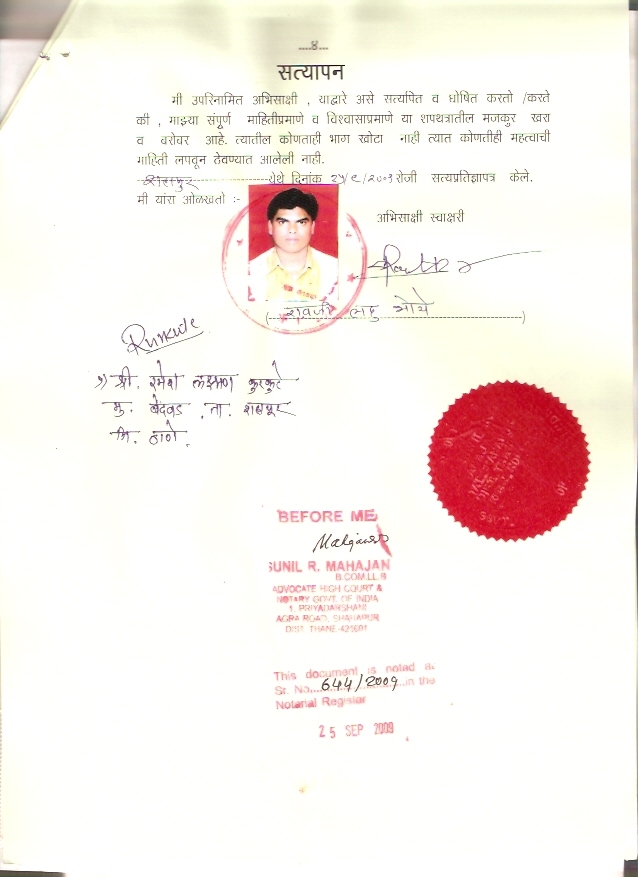 ...४...
सत्यापन
मी उपरिनामित अभिसाक्षी , याद्वारे असे सत्यपित व धोषित करतो /करते
की , माझ्या संपूर्ण माहितीप्रमाणे व विश्वासाप्रमाणे या शपथत्रातील मजकुर खरा
व बरोवर आहे. त्यातील कोणताही भाग खोटा नाही त्यात कोणतीही महत्वाची
माहिती लपवून ठेवण्यात आलेली नाही.
शहापुर येथे दिनांक २५/९/२००९ रोजी सत्यप्रतिज्ञापत्र केले.
मी यांस ओळखतो :-
अभिसाक्षी स्वाक्षरी
(लहु)
१) श्री. रमेश लक्ष्मण कुरकुटे
मु. बेंदवड ता. शहापूर
जि. ठाणे.
BEFORE ME
SUNIL R. MAHAJAN
B.COM.LL.B
ADVOCATE HIGH COURT &
NOTARY GOVT. OF INDIA
1, PRIYADARSHANI
AGRA ROAD, SHAHAPUR
DIST. THANE-421601
This document is noted at
Sr. No. 644/2009 in the
Notarial Register
25 SEP 2009